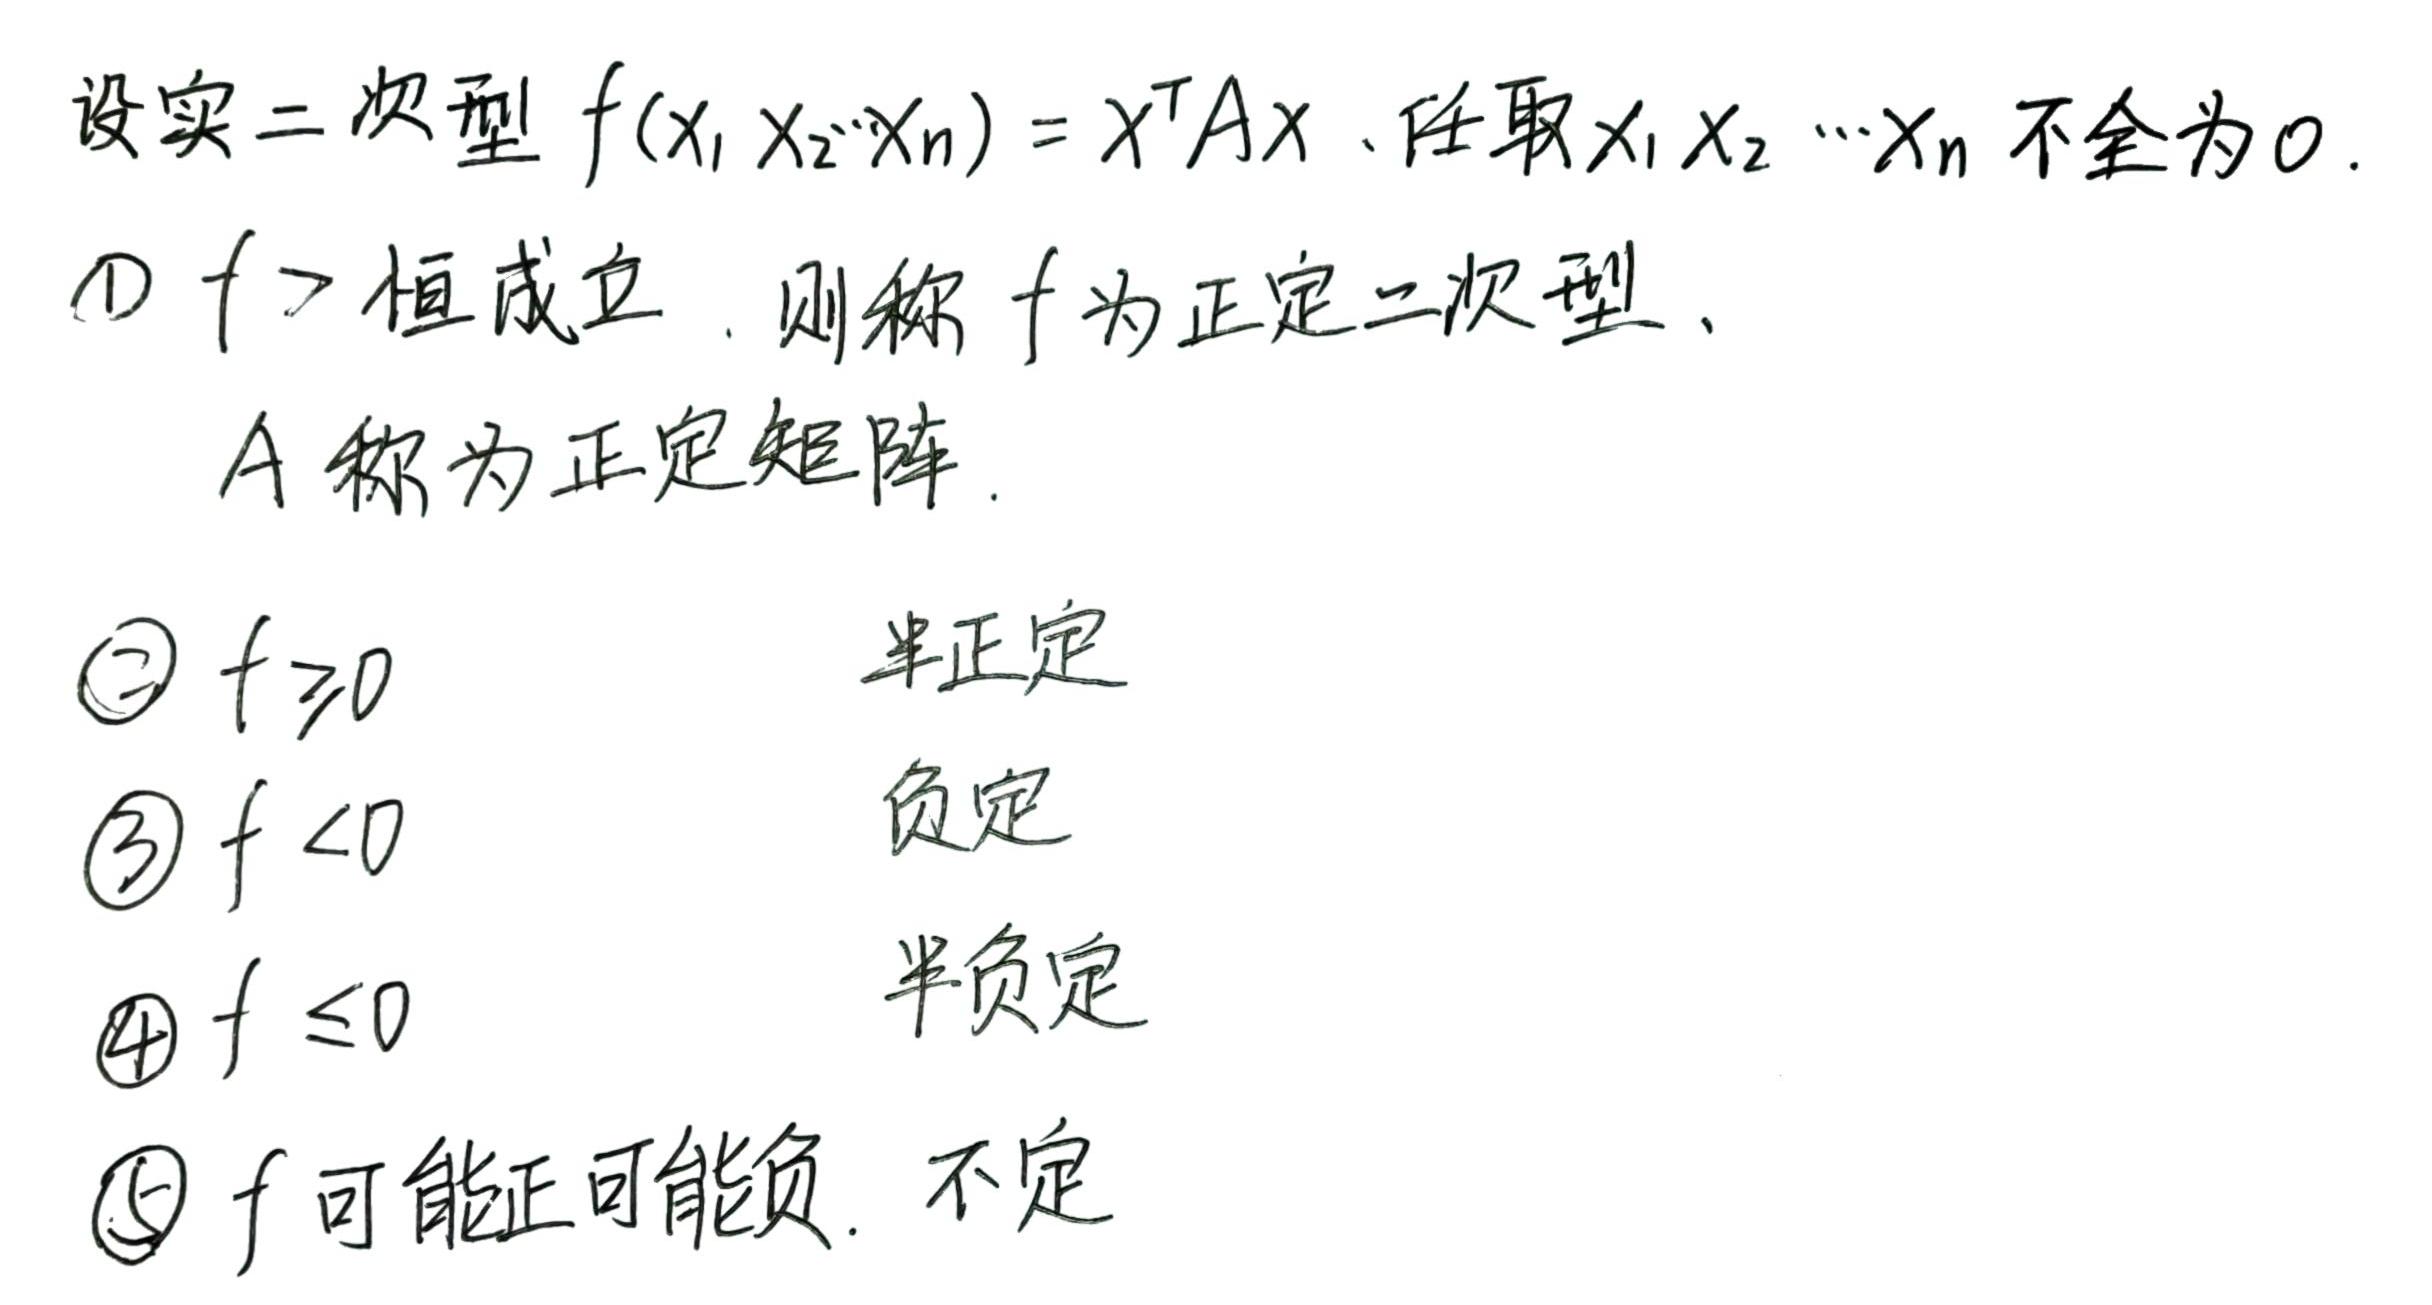 设实二次型 f(x₁ x₂…xₙ) = xᵀAx、任取x₁ x₂ …xₙ 不全为0.
① f > 恒成立. 则称 f 为正定二次型、
A 称为正定矩阵.
② f ≥0 半正定
③ f <0 负定
④ f ≤0 半负定
⑤ f 可能正可能负. 不定